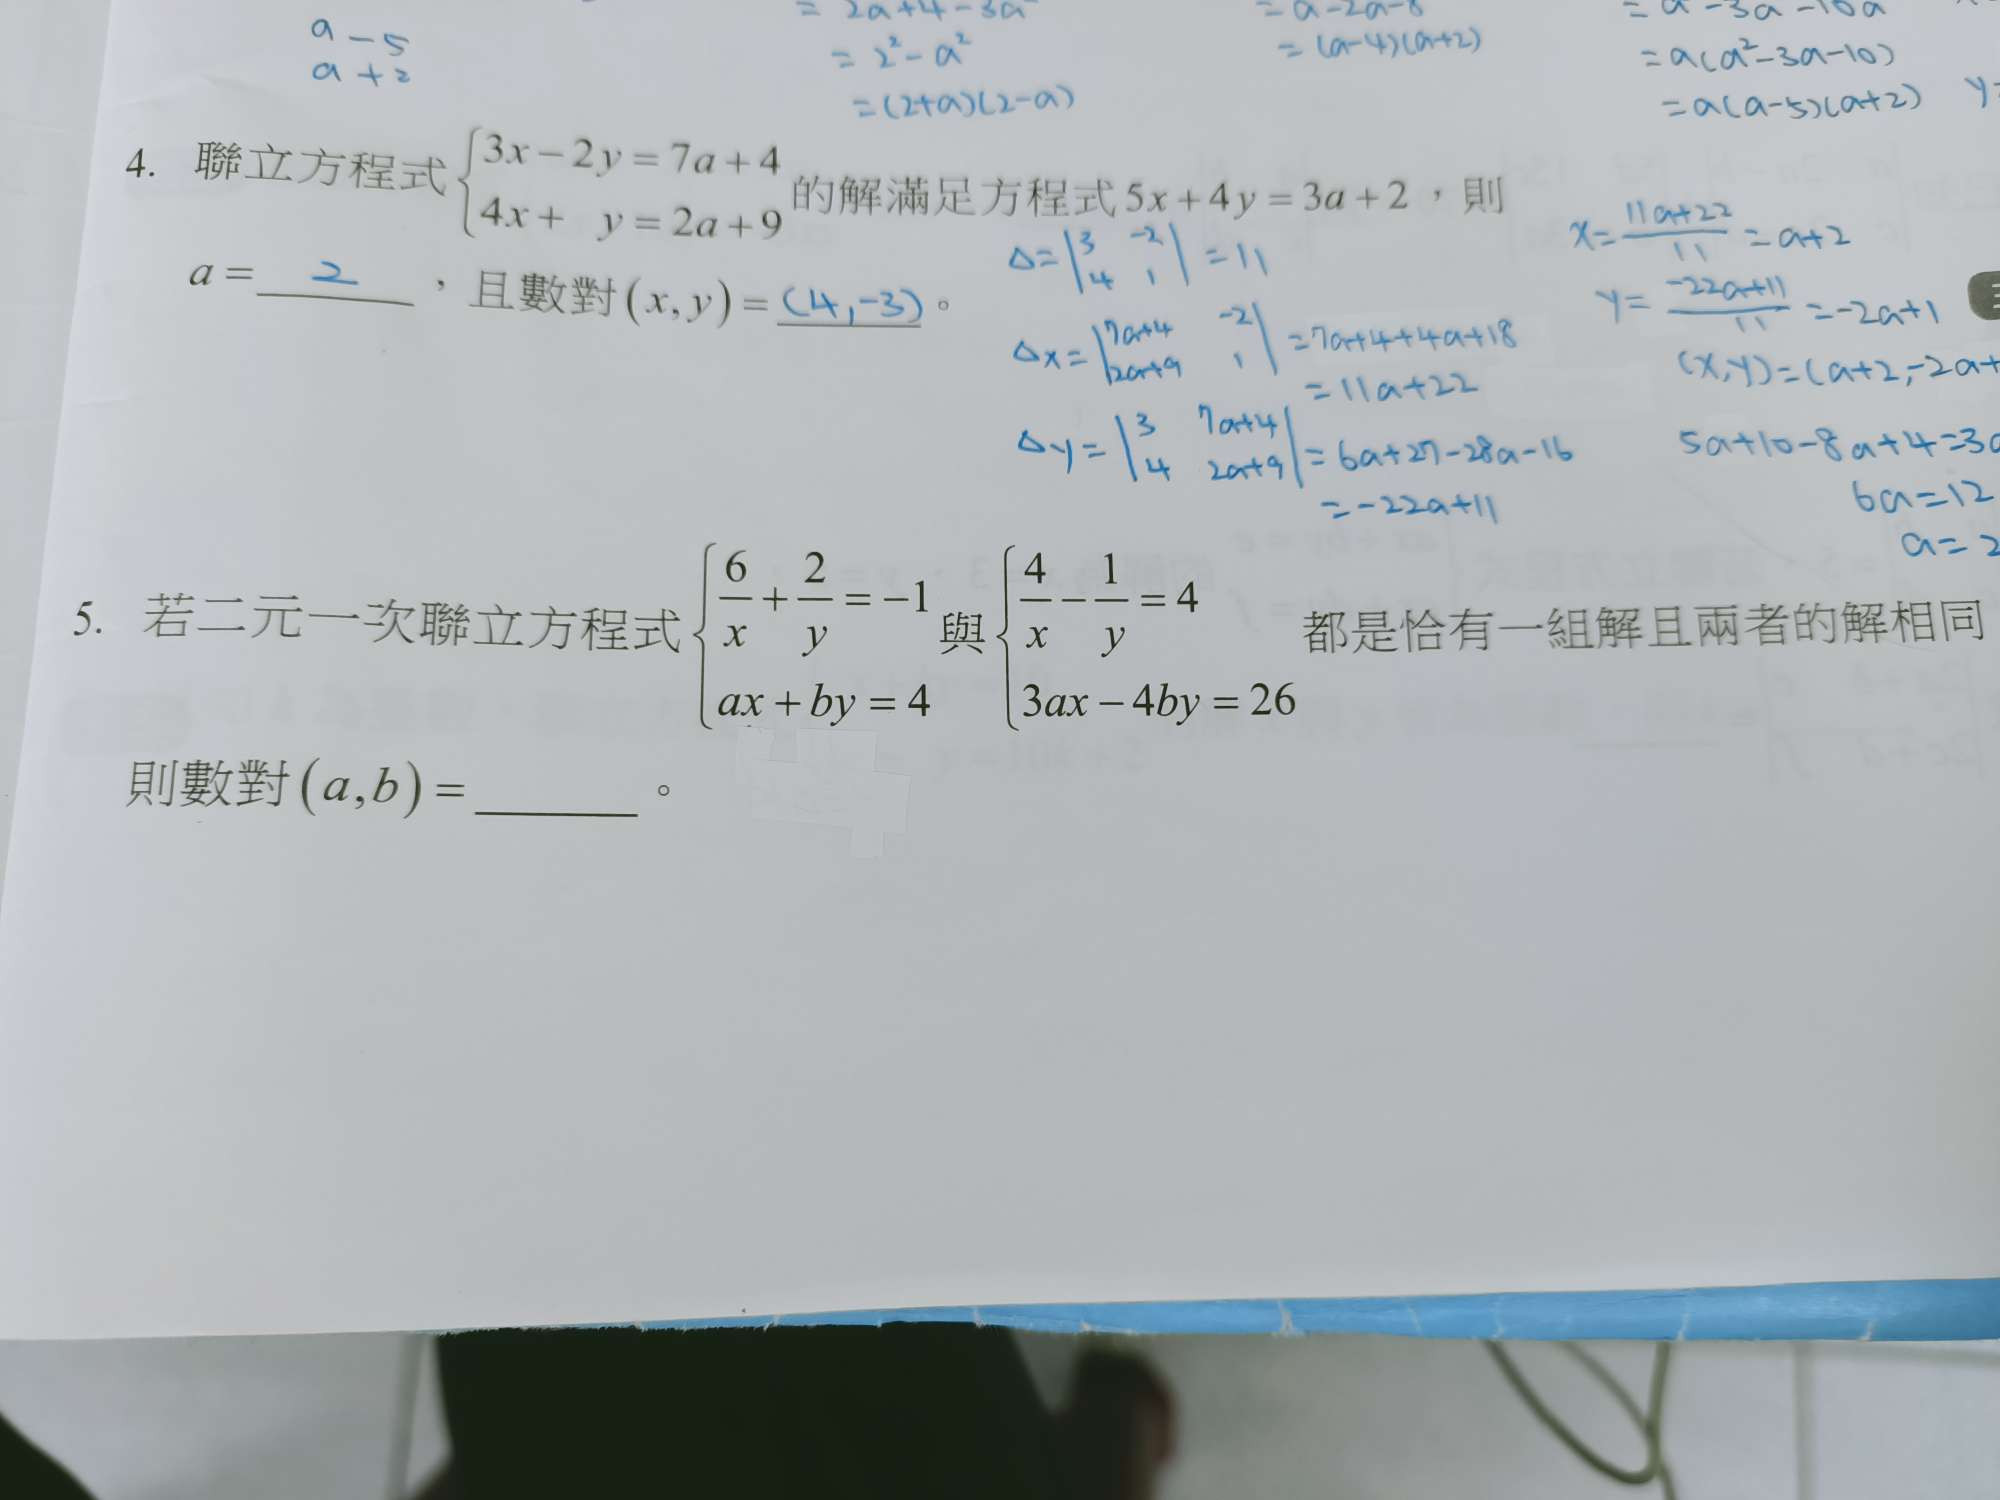 a - 5
a + 2
= 2²-a²
=(2+a)(2-a)
=(a-4)(a+2)
=a(a²-3a-10)
=a(a-5)(a+2)
4. 聯立方程式{3x-2y=7a+4
4x+ y=2a+9
的解滿足方程式5x+4y=3a+2，則
a= 2 ，且數對(x,y)=(4,-3)。
Δ=|3 -2
4 1|=11
Δx=|7a+4 -2
2a+9 1|=7a+4+4a+18
=11a+22
Δy=|3 7a+4
4 2a+9|=6a+27-28a-16
=-22a+11
x=11a+22/11=a+2
y=-22a+11/11=-2a+1
(x,y)=(a+2,-2a+
5a+10-8a+4=3a
6a=12
a=2
5. 若二元一次聯立方程式{6/x+2/y=-1
ax+by=4
與{4/x-1/y=4
3ax-4by=26
都是恰有一組解且兩者的解相同
則數對(a,b)=______。